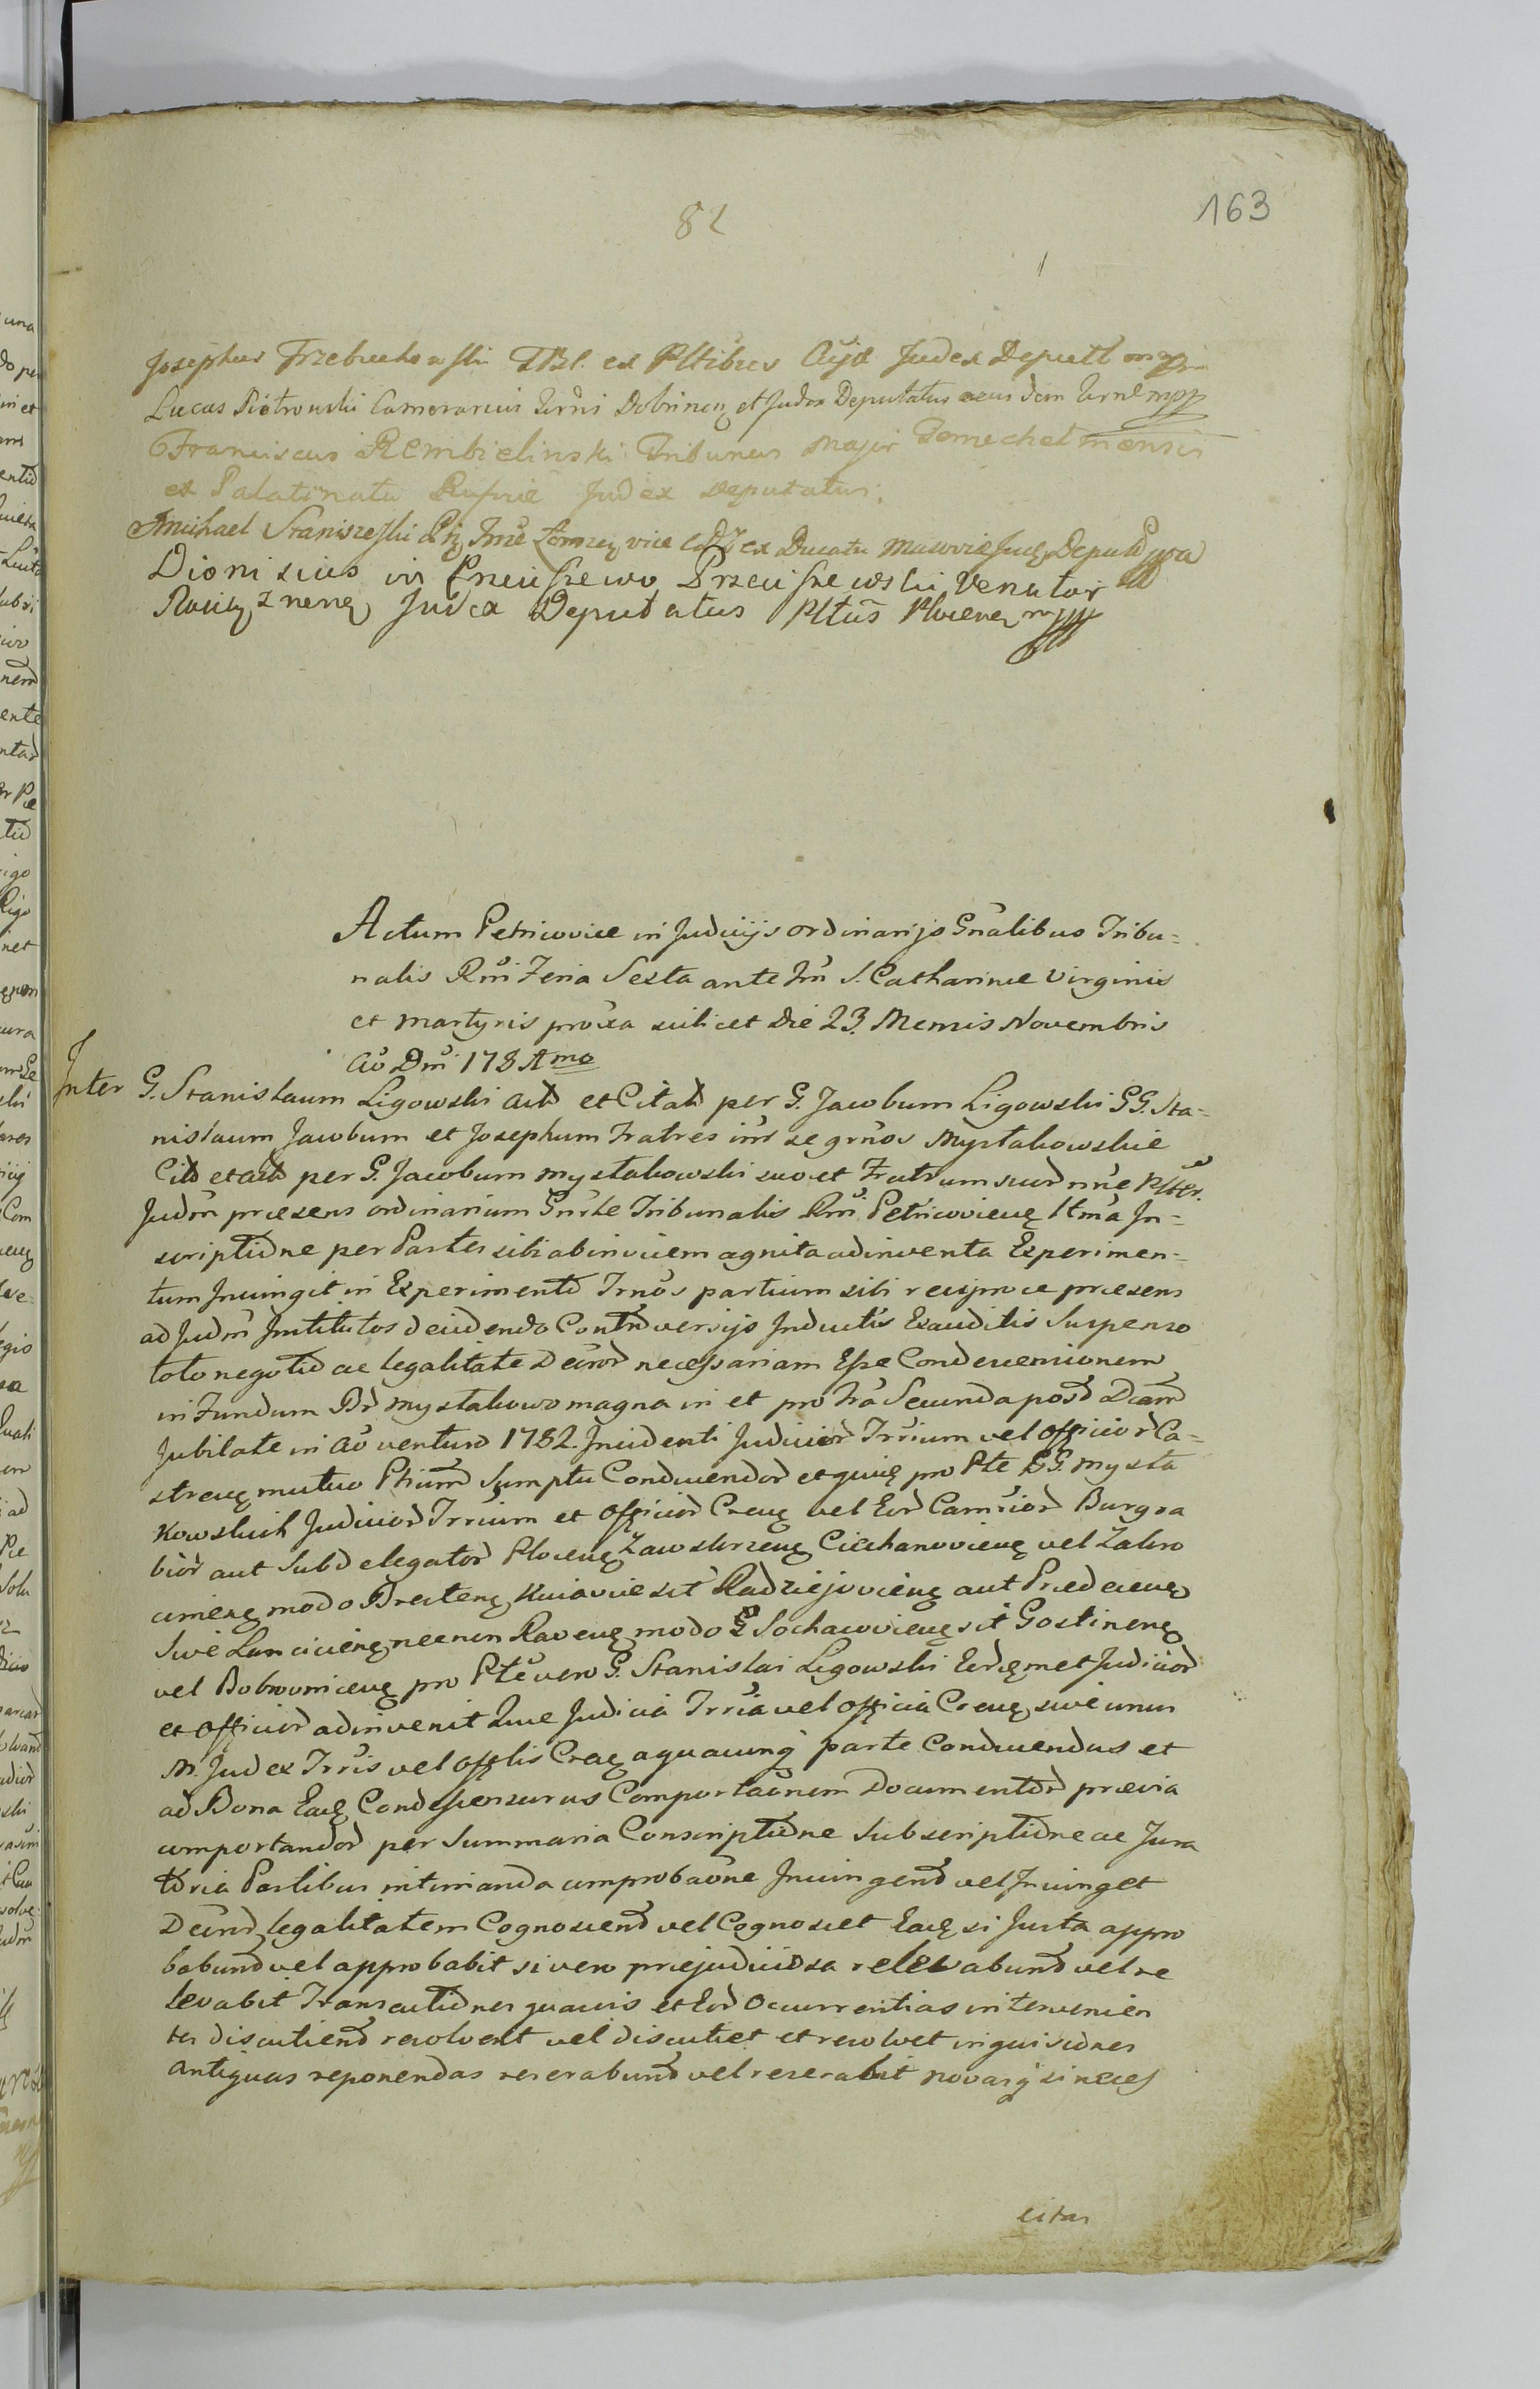 82
163
Josephus Trzebuchowski TBl. ex Pltibus Cujå Judex Deputt mpp
Lucas Piotrowski Camerarius Terris Dobrineñ et Judex Deputatus eius dem Terræ mpp
Franciscus Rembielinski Tribunus Major Terræ chelmensis
ex Palatinatu Russiæ Judex Deputatus.
Michael Staniszewski Ptz Træ Łomzeñ vice ex Ducatu Masoviæ Jud Deputt mpp
Dionisius in Preciszewo Przeciszewski Venator
Judex Deputatus Pltûs Ploceneñ mpp
Actum Petricoviæ in Judiciis ordinarijs Gñalibus Tribu=
nalis Rñi Feria Sexta ante Fm S. Catharinæ Virginis
et Martyris proxa scilicet Die 23. Mensis Novembris
Aõ Dñi 1781mo
Inter G. Stanislaum Ligowski act et Citat per G. Jacobum Ligowski GG. Sta=
nislaum Jacobum et Josephum Fratres int se grnos Mystakowskie
Cit et act per G. Jacobum Mystakowski suo et Fratrum suor nne Plter.
Judm præsens ordinarium Gnrle Tribunalis Rñi Petricovieñ Itma In=
scriptione per Partes sibi ab invicem agnita adinventa Experimen=
tum Iniungit in Experimento Trnos partium sibi reciproce præsens
ad Judm Institutos decidendo Controversijs Inductis Exauditis Suspenso
toto negotio ac legalitate Docror necessariam Esse Condescensionem
in Fundum Br Mystakowo magna in et pro Fra Secunda post Dcam
Jubilate in aõ venturo 1782. Incidenti Judicior Trrium vel officior Ca=
streñ mutuo Ptium Sumptu Conducendor et quidem pro Pte GG. Mysta
kowskich Judicior Trrium et officior Creñ vel Eor Camrior Burgra
bior aut Subdelegator Ploceñ Zawskrzeñ Ciechanovieñ vel Zakro
cimeñ modo Bresteñ Kuiaviæ sit Radziejovieñ aut Prædeceñ
Sive Lancicieñ necnon Raveñ modo Sochacovieñ sit Gostineñ
vel Bobrovniceñ pro Pte vero G. Stanislai Ligowski Eordemet Judicior
et officior adinvenit Quæ Judicia Trria vel officia Creñ sive unus
M. Judex Trris vel offlis Creñ a quacunq parte Conducendus et
ad Bona Eadem Condescensurus Comportaõnem Documentor prævia
comportandor per Summaria Conscriptione Subscriptione ac Jura
toria Partibus intimanda comprobaõne Iniungent vel Iniunget
Docror legalitatem Cognoscent vel Cognoscet Eadem si Justa appro
babunt vel approbabit si vero præjudiciosa relevabunt vel re
levabit Transactiones quavis et Eor occurrentias intervenien
tes discutient resolvent vel discutiet et resolvet inquisiones
antiquas reponendas reserabunt vel reserabit novasq si neces
citas